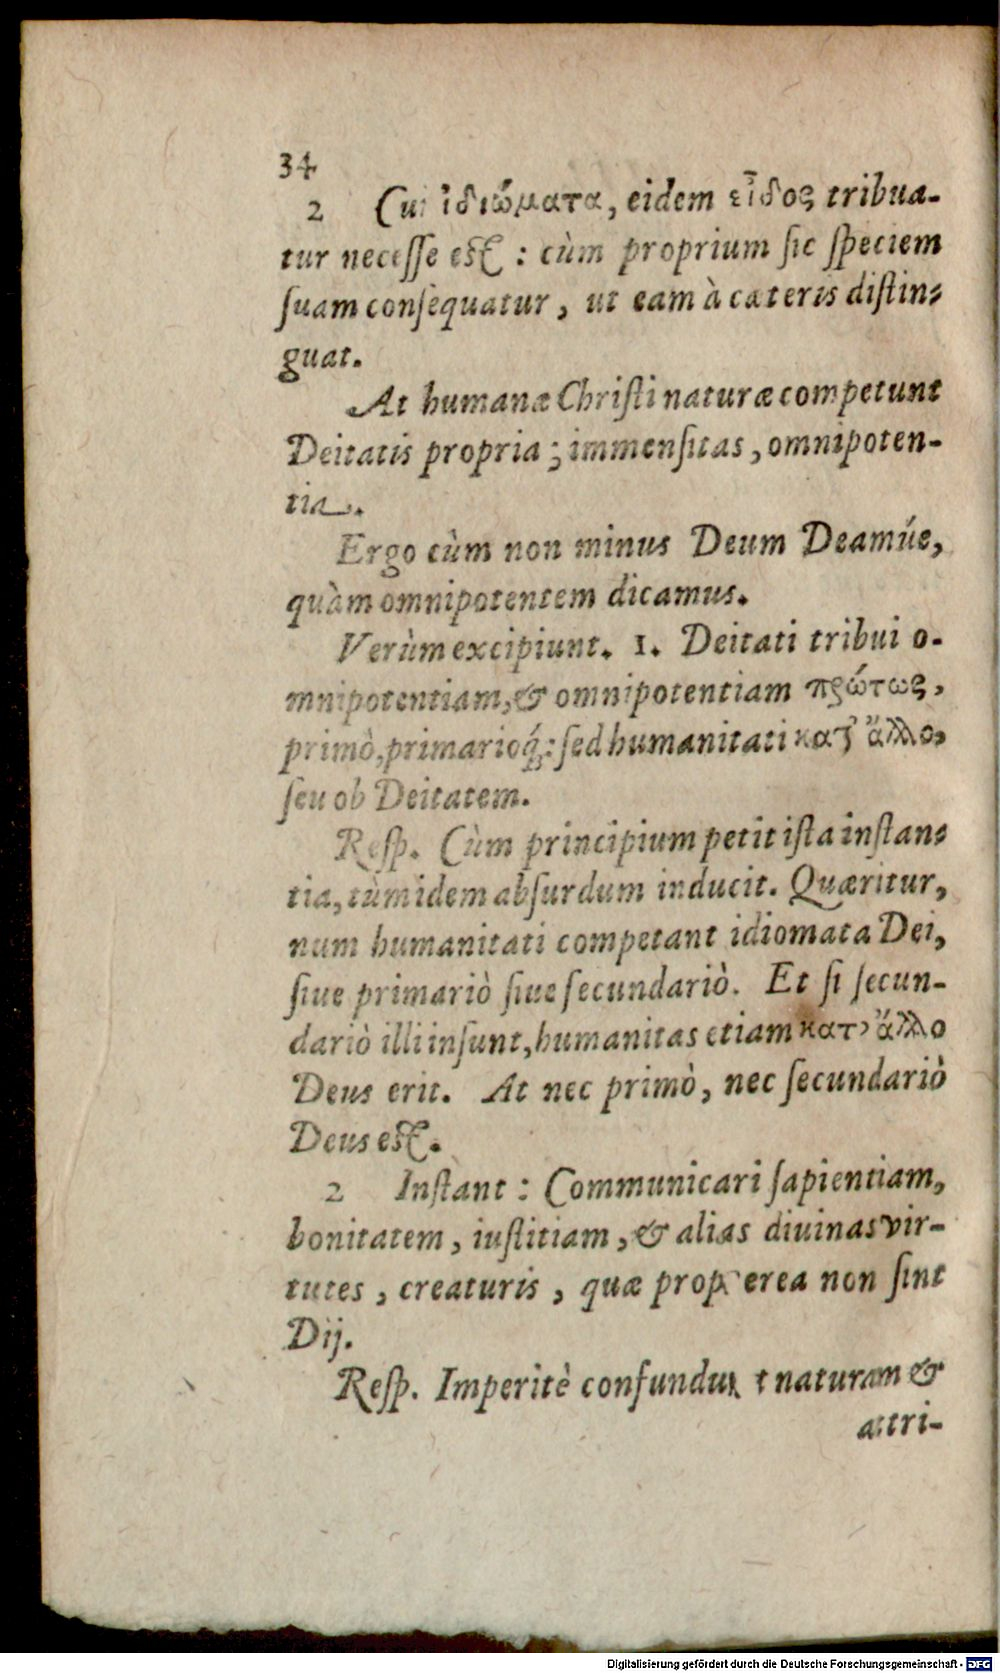 34
2 Cui ἰδιώματα, eidem εἶδος tribua-
tur necesse est : cùm proprium sic speciem
suam consequatur, ut eam à cæteris distin-
guat.
At humanæ Christi naturæ competunt
Deitatis propria ; immensitas, omnipoten-
tia.
Ergo cùm non minus Deum Deamúe,
quàm omnipotentem dicamus.
Verùm excipiunt. 1. Deitati tribui o-
mnipotentiam, & omnipotentiam πρώτως,
primò, primarioq́; : sed humanitati κατ' ἄλλο,
seu ob Deitatem.
Resp. Cùm principium petit ista instan-
tia, tùm idem absurdum inducit. Quæritur,
num humanitati competant idiomata Dei,
siue primariò siue secundariò. Et si secun-
dariò illi insunt, humanitas etiam κατ' ἄλλο
Deus erit. At nec primò, nec secundariò
Deus est.
2 Instant : Communicari sapientiam,
bonitatem, iustitiam, & alias diuinas vir-
tutes, creaturis, quæ propterea non sint
Dij.
Resp. Imperitè confundunt naturam &
attri-
Digitalisierung gefördert durch die Deutsche Forschungsgemeinschaft - DFG